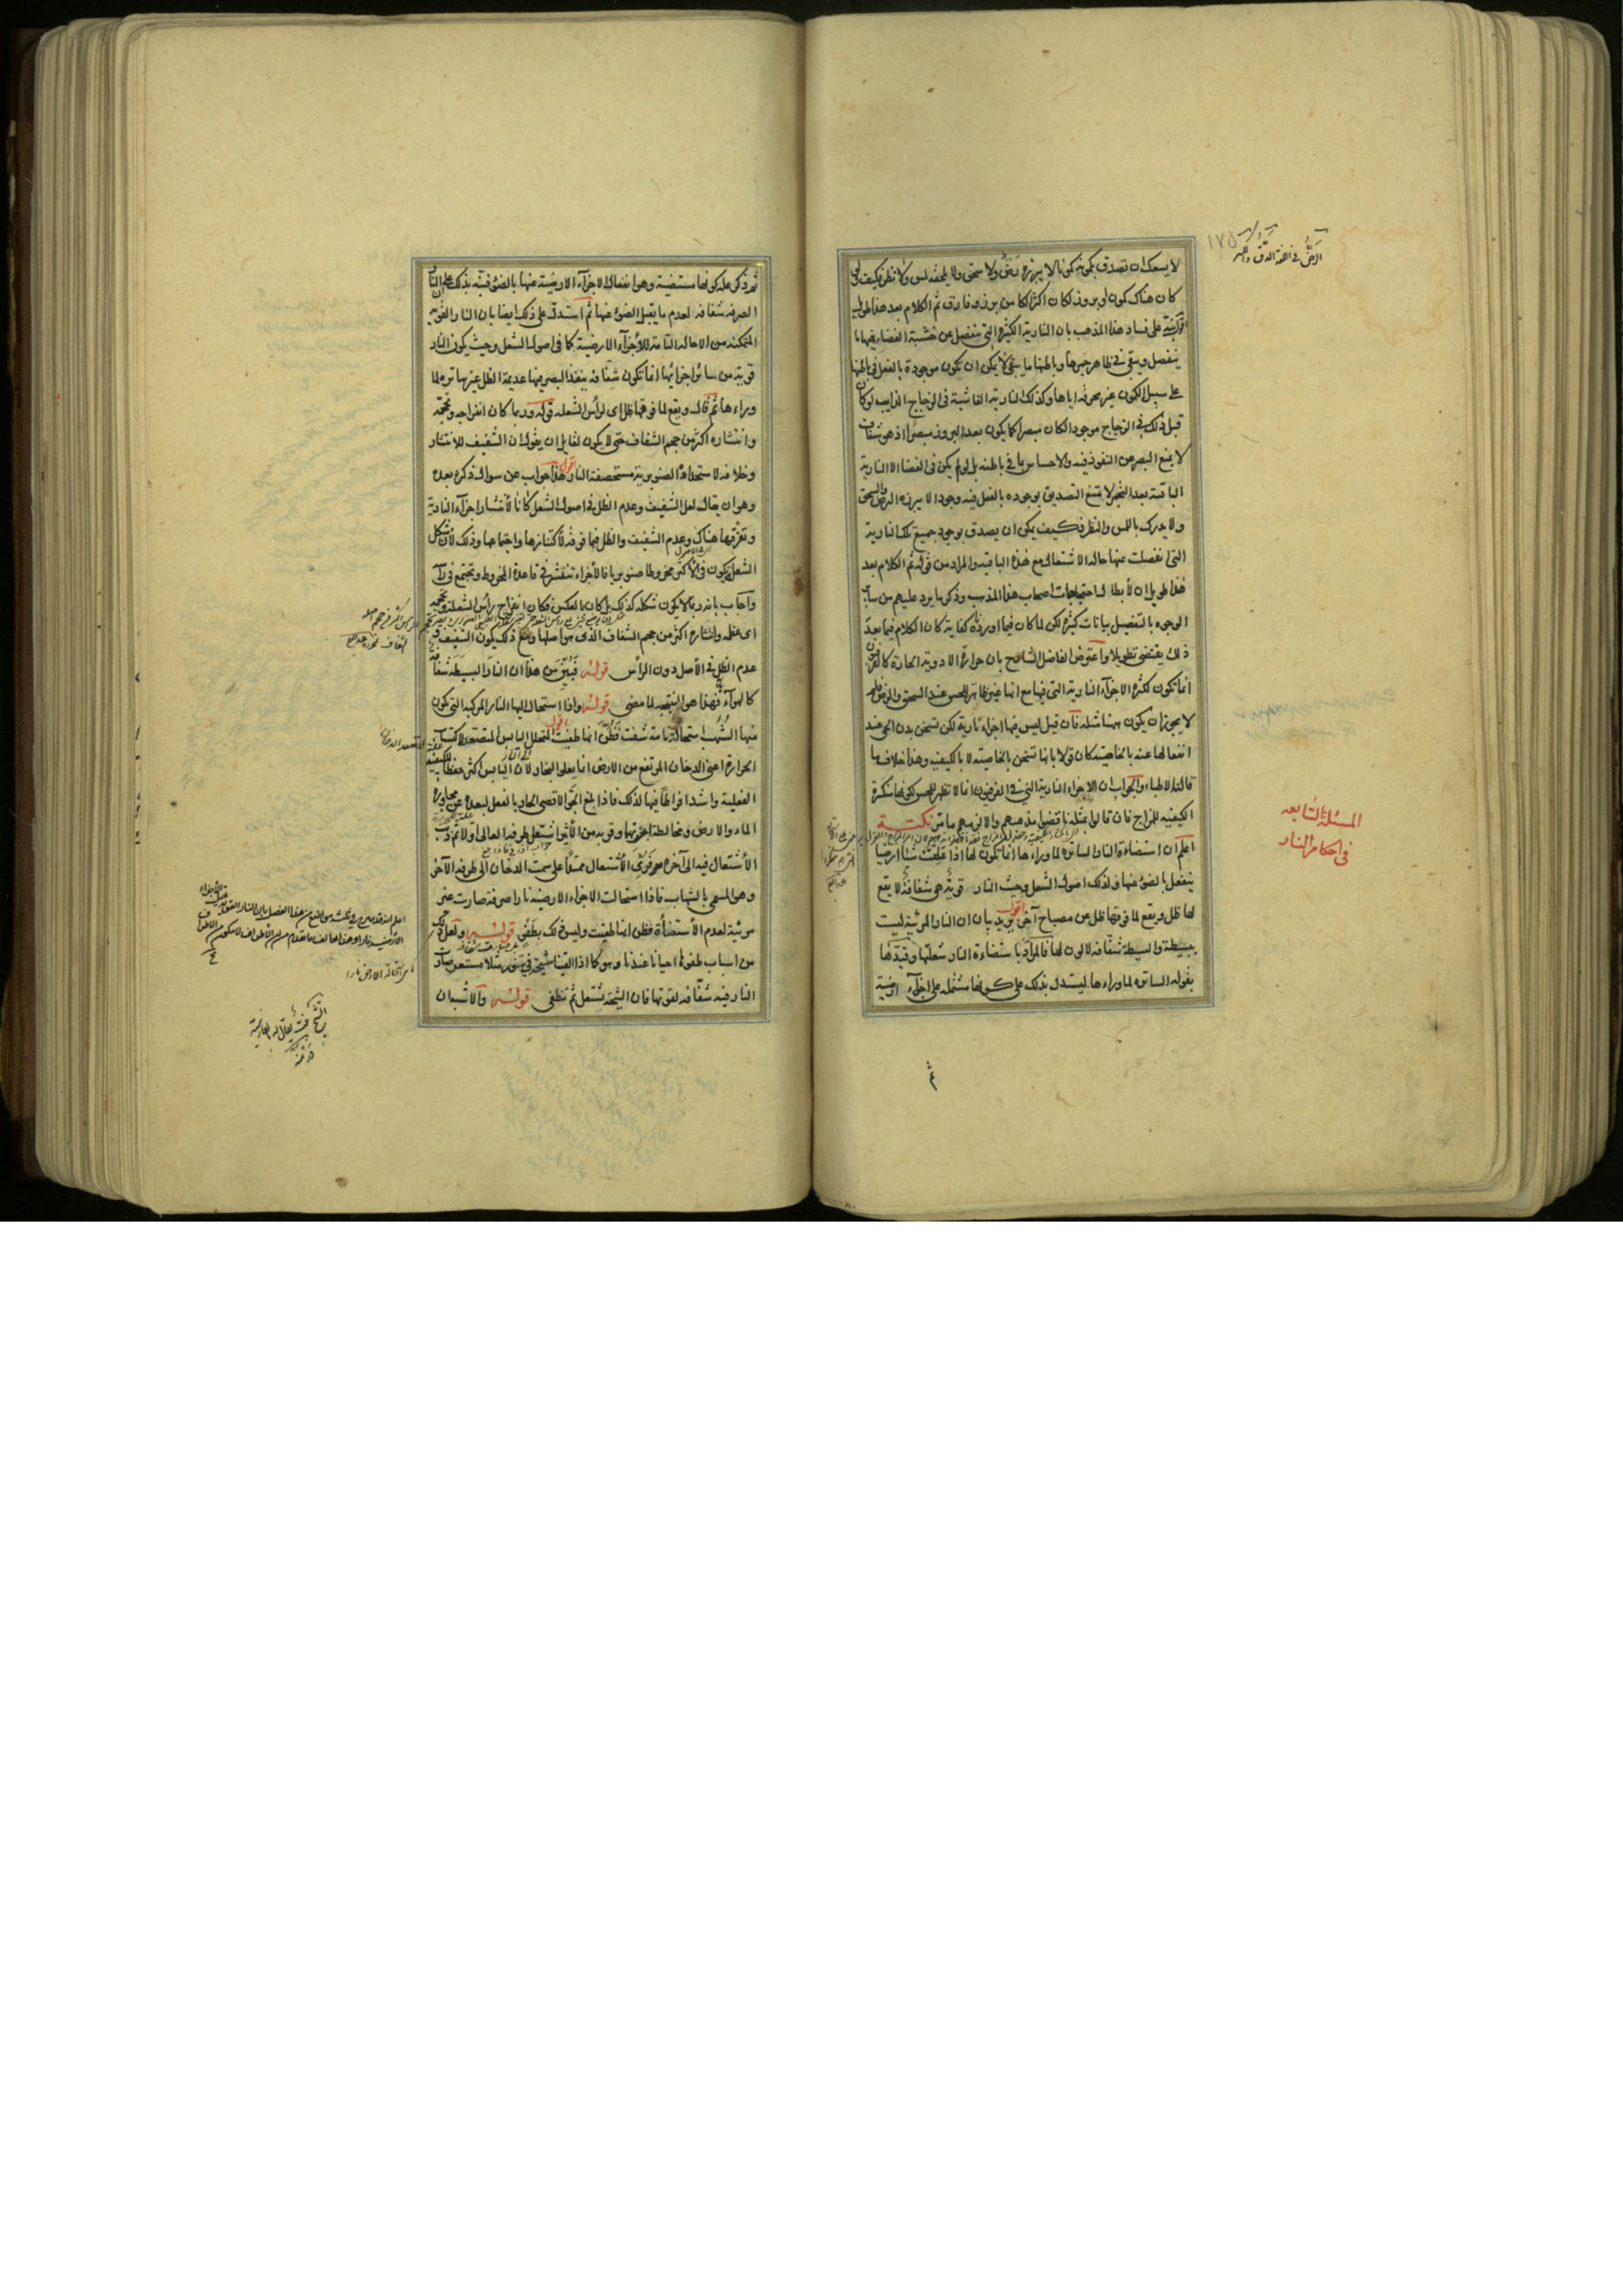 لا يسعك ان تصدق بكمونه كمونا لا يبرزه رض ولا سحق ولا يلحقه لمس ولا نظر فكيف ولو
كان هناك كمون وبروز لكان اكثر الكامن برز وفارق ثم الكلام بعد هذا طويل
اقول نبه على فساد هذا المذهب بان النارية الكثيرة التي تنفصل عن خشبة الغضا فيها ما
ينفصل ويبقى في ظاهر جمرها وباطنها ما يبقى لا يمكن ان تكون موجودة بالفعل في باطنها
على سبيل الكون غير محرقة اياها وكذلك النارية الفاشية في الزجاج الذايب لو كان
قبل ذلك في الزجاج موجودا لكان مبصرا كما يكون بعد البروز مبصرا اذ هو شفاف
لا يمنع البصر عن النفوذ فيه والاحساس بما في باطنه بل لو لم يكن في الغضا الا النارية
الباقية بعد التجمر لامتنع التصديق بوجوده بالفعل فيه وجودا لا يبرزه الرض والسحق
ولا يدرك باللمس والنظر فكيف يمكن ان يصدق بوجود جميع تلك النارية
التي انفصلت عنها حالة الاشتعال مع هذه الباقية والمراد من قوله ثم الكلام بعد
هذا طويل ان لابطال احتجاجات اصحاب هذا المذهب وذكر ما يرد عليهم من ساير
الوجوه بالتفصيل بيانات كثيرة لكن لما كان فيما اورده كفاية كان الكلام فيما بعد
ذلك يقتضي تطويلا واعترض الفاضل الشارح بان حرارة الادوية الحارة كالفرفيون
انما تكون لكثرة الاجزاء النارية التي فيها مع انها غير ظاهرة للحس عند السحق والرض فلم
لا يجوز ان يكون ههنا مثله فان قيل ليس فيها اجزاء نارية لكن تسخن بدن الحي عند
انفعالها عنه بالخاصية كان قولا بانها تسخن بالخاصية لا بالكيفية وهذا خلاف ما
قالته الاطباء والجواب ان الاجزاء النارية التي في الفرفيون انما لا تظهر للحس لكونها منكسرة
الكيفية للمزاج فان قالوا بمثله ناقضوا مذهبهم والا لزمهم ما مر نكتة
اعلم ان استضاءة النار الساترة لما وراءها انما تكون لها اذا علقت شيئا ارضيا
ينفعل بالضوء عنها ولذلك اصول الشعل وحيث النار قوية هي شفافة لا يقع
لها ظل ويقع لما فوقها ظل عن مصباح آخر اقول يريد بيان ان النار المرئية ليست
ببسيطة والبسيطة شفافة لا لون لها فالمراد باستضاءة النار شعلتها وقيدها
بقوله الساترة لما وراءها ليستدل بذلك على كونها مشتملة على اجزاء ارضية
الرض في اللغة الدق والكسر
١٧٥
المسئلة السابعة
في احكام النار
ثم ذكر علة كونها مستضيئة وهو انفعال الاجزاء الارضية عنها بالضوء فنبه بذلك على ان النار
الصرفة شفافة لعدم ما يقبل الضوء عنها ثم استدل على ذلك ايضا بان النار القوية
المتمكنة من الاحالة التامة للاجزاء الارضية كما في اصول الشعل وحيث يكون النار
قوية من سائر اجزائها انما تكون شفافة ينفذ البصر فيها عديمة الظل غير ساترة لما
وراءها ثم قال ويقع لما فوقها ظل اي لرأس الشعلة قوله وربما كان انفراجه وتحجمه
وانتشاره اكثر من حجم الشفاف حتى لا يكون لقائل ان يقول ان التشفيف للانتشار
وخلافه لاستحداد الصنوبرية مستحصفة النار اقول هذا جواب عن سوال ذكره بعده
وهو ان يقال لعل التشفيف وعدم الظل في اصول الشعل كانا لانتشار اجزاء النارية
وتفرقها هناك وعدم التشفيف والظل فيما فوقه لاكتنازها واجتماعها وذلك لان شكل
الشعل يكون في الاكثر مخروطا صنوبريا فالاجزاء تنتشر في قاعدة المخروط وتجتمع في رأسه
واجاب بانه ربما لا يكون شكله كذلك بل كان بالعكس فكان انفراج رأس الشعلة وتحجمه
اي عظمه وانتشاره اكثر من حجم الشفاف الذي هو اصلها ومع ذلك يكون التشفيف و
عدم الظل في الاصل دون الرأس قوله فبين من هذا ان النار البسيطة شفافة
كالهواء فهذا هو النتيجة لما مضى قوله واذا استحال اليها النار المركبة التي تكون
منها الشهب استحالة تامة شفت فظن انها طفئت اقول المتحلل اليابس المتصعد لاكتساب
الحرارة اعني الدخان المرتفع من الارض انما يعلو البخار لان اليابس اكثر حفظا للكيفية
الفعلية واشد افراطا فيها لذلك فاذا بلغ الجو الاقصى الحار بالفعل لبعده عن مجاورة
الماء والارض ومخالطة ابخرتها وقربه من الاثير اشتعل طرفه العالي اولا ثم ذهب
الاشتعال فيه الى آخره فرئي الاشتعال ممتدا على سمت الدخان الى طرفه الآخر
وهو المسمى بالشهاب فاذا استحالت الاجزاء الارضية نارا صرفة صارت غير
مرئية لعدم الاستضاءة فظن انها طفئت وليس ذلك بطفوء قوله ولعل ذلك
من اسباب طفوها احيانا عندنا وهو كما اذا القينا شيحة في تنور مثلا مستعر صارت
النار فيه شفافة لقوتها فان الشيحة تشتعل ثم تنطفى قوله والاشبه ان